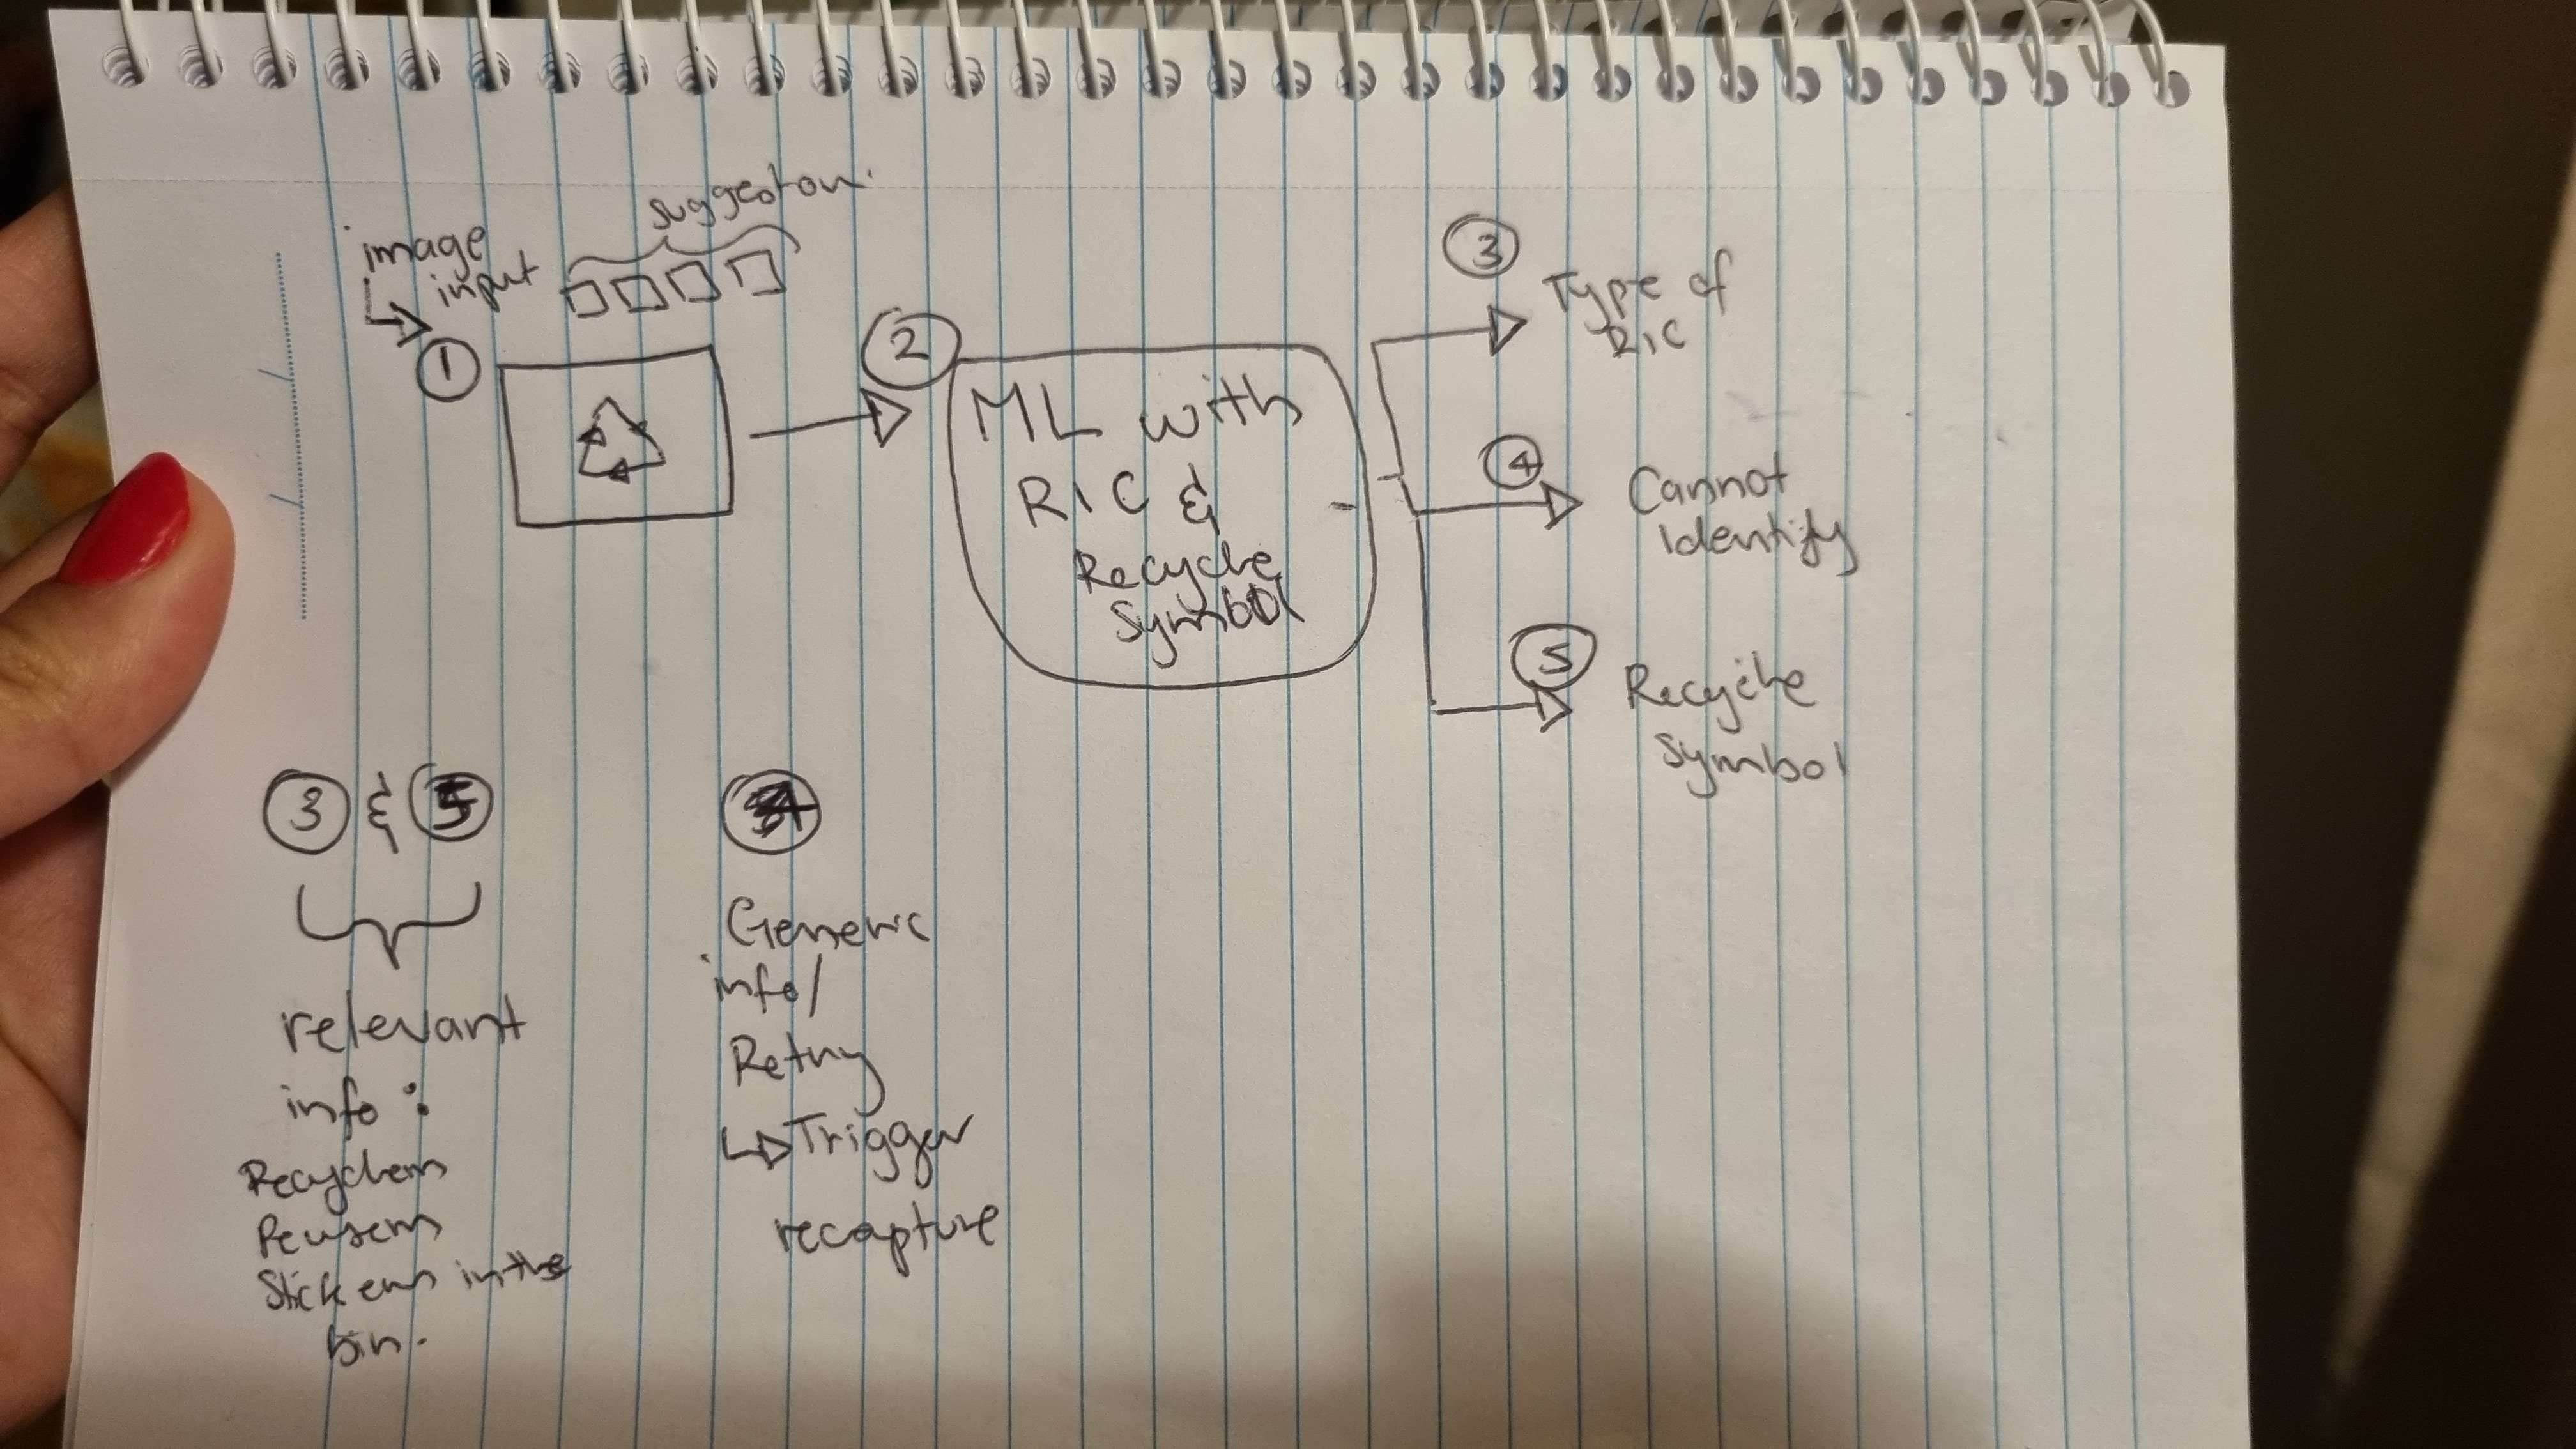 suggeston.
image
input
1
2
ML with
RIC &
Recycle
Symbol
3
Type of
RIC
4
Cannot
Identify
5
Recycle
Symbol
3 & 5
relevant
info :
Stickers in the
bin.
4
Generic
info/
Retry
Trigger
recapture